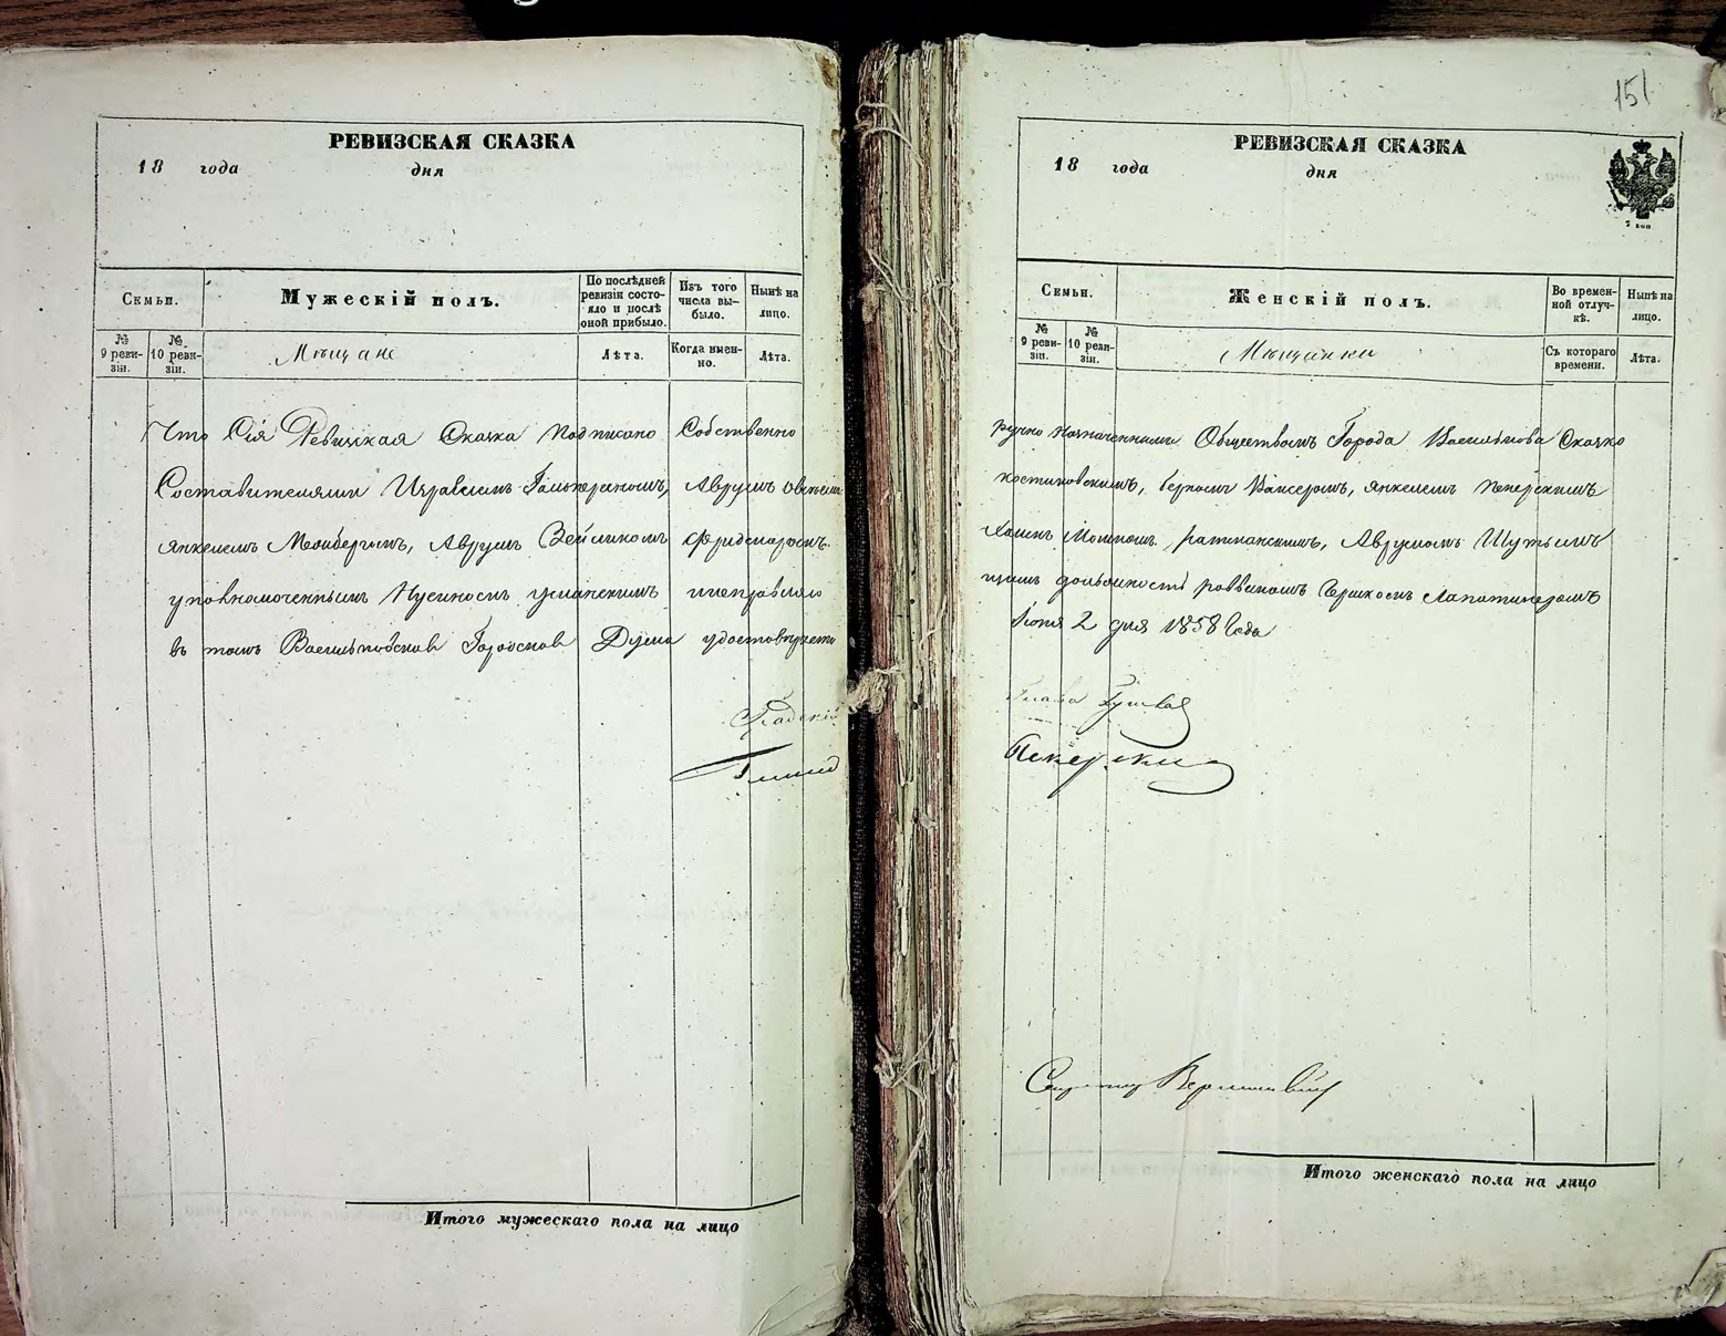 РЕВИЗСКАЯ СКАЗКА
18 года дня
Семьи.
Мужескій полъ.
По послѣдней ревизіи состояло и послѣ оной прибыло.
Изъ того числа выбыло.
Нынѣ на лицо.
№ 9 ревизіи.
№ 10 ревизіи.
Мѣщане
Лѣта.
Когда именно.
Лѣта.
Что Сія Ревизская Сказка подписано Собственно
Составителями Израилемъ Гальпериномъ, Аврумъ
Янкелемъ Мезибергимъ, Аврумъ Зейликомъ
уповномоченнымъ Нусиномъ Уманскимъ
въ томъ Васильковская Городская Дума удостовѣряетъ
Градскій
Итого мужескаго пола на лицо
151
РЕВИЗСКАЯ СКАЗКА
18 года дня
Семьи.
Женскій полъ.
Во временной отлучкѣ.
Нынѣ на лицо.
№ 9 ревизіи.
№ 10 ревизіи.
Мѣщанки
Съ котораго времени.
Лѣта.
ручно назначенными Обществомъ Города Василькова Сказко
Берком Ваксеромъ, Янкелемъ Пекерскимъ
Хаимъ Аврумомъ
должность раввиномъ Гершкомъ
Іюня 2 дня 1858 Года
Глава
Пекерскій
Итого женскаго пола на лицо